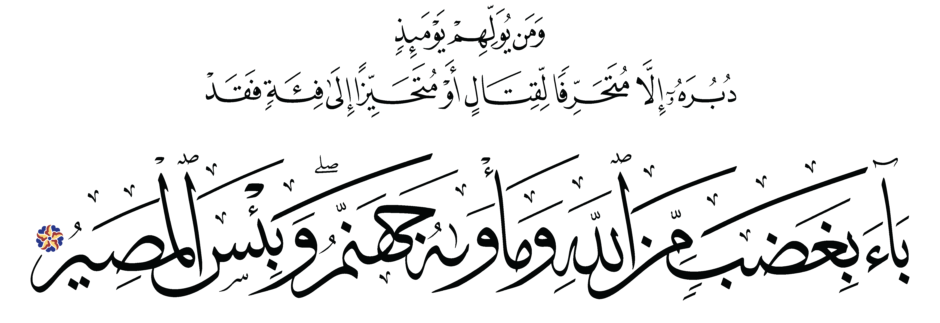 وَمَن يُوَلِّهِمْ يَوْمَئِذٍ
دُبُرَهُۥٓ إِلَّا مُتَحَرِّفًا لِّقِتَالٍ أَوْ مُتَحَيِّزًا إِلَىٰ فِئَةٍ فَقَدْ
بَآءَ بِغَضَبٍ مِّنَ ٱللَّهِ وَمَأْوَىٰهُ جَهَنَّمُ ۖ وَبِئْسَ ٱلْمَصِيرُ